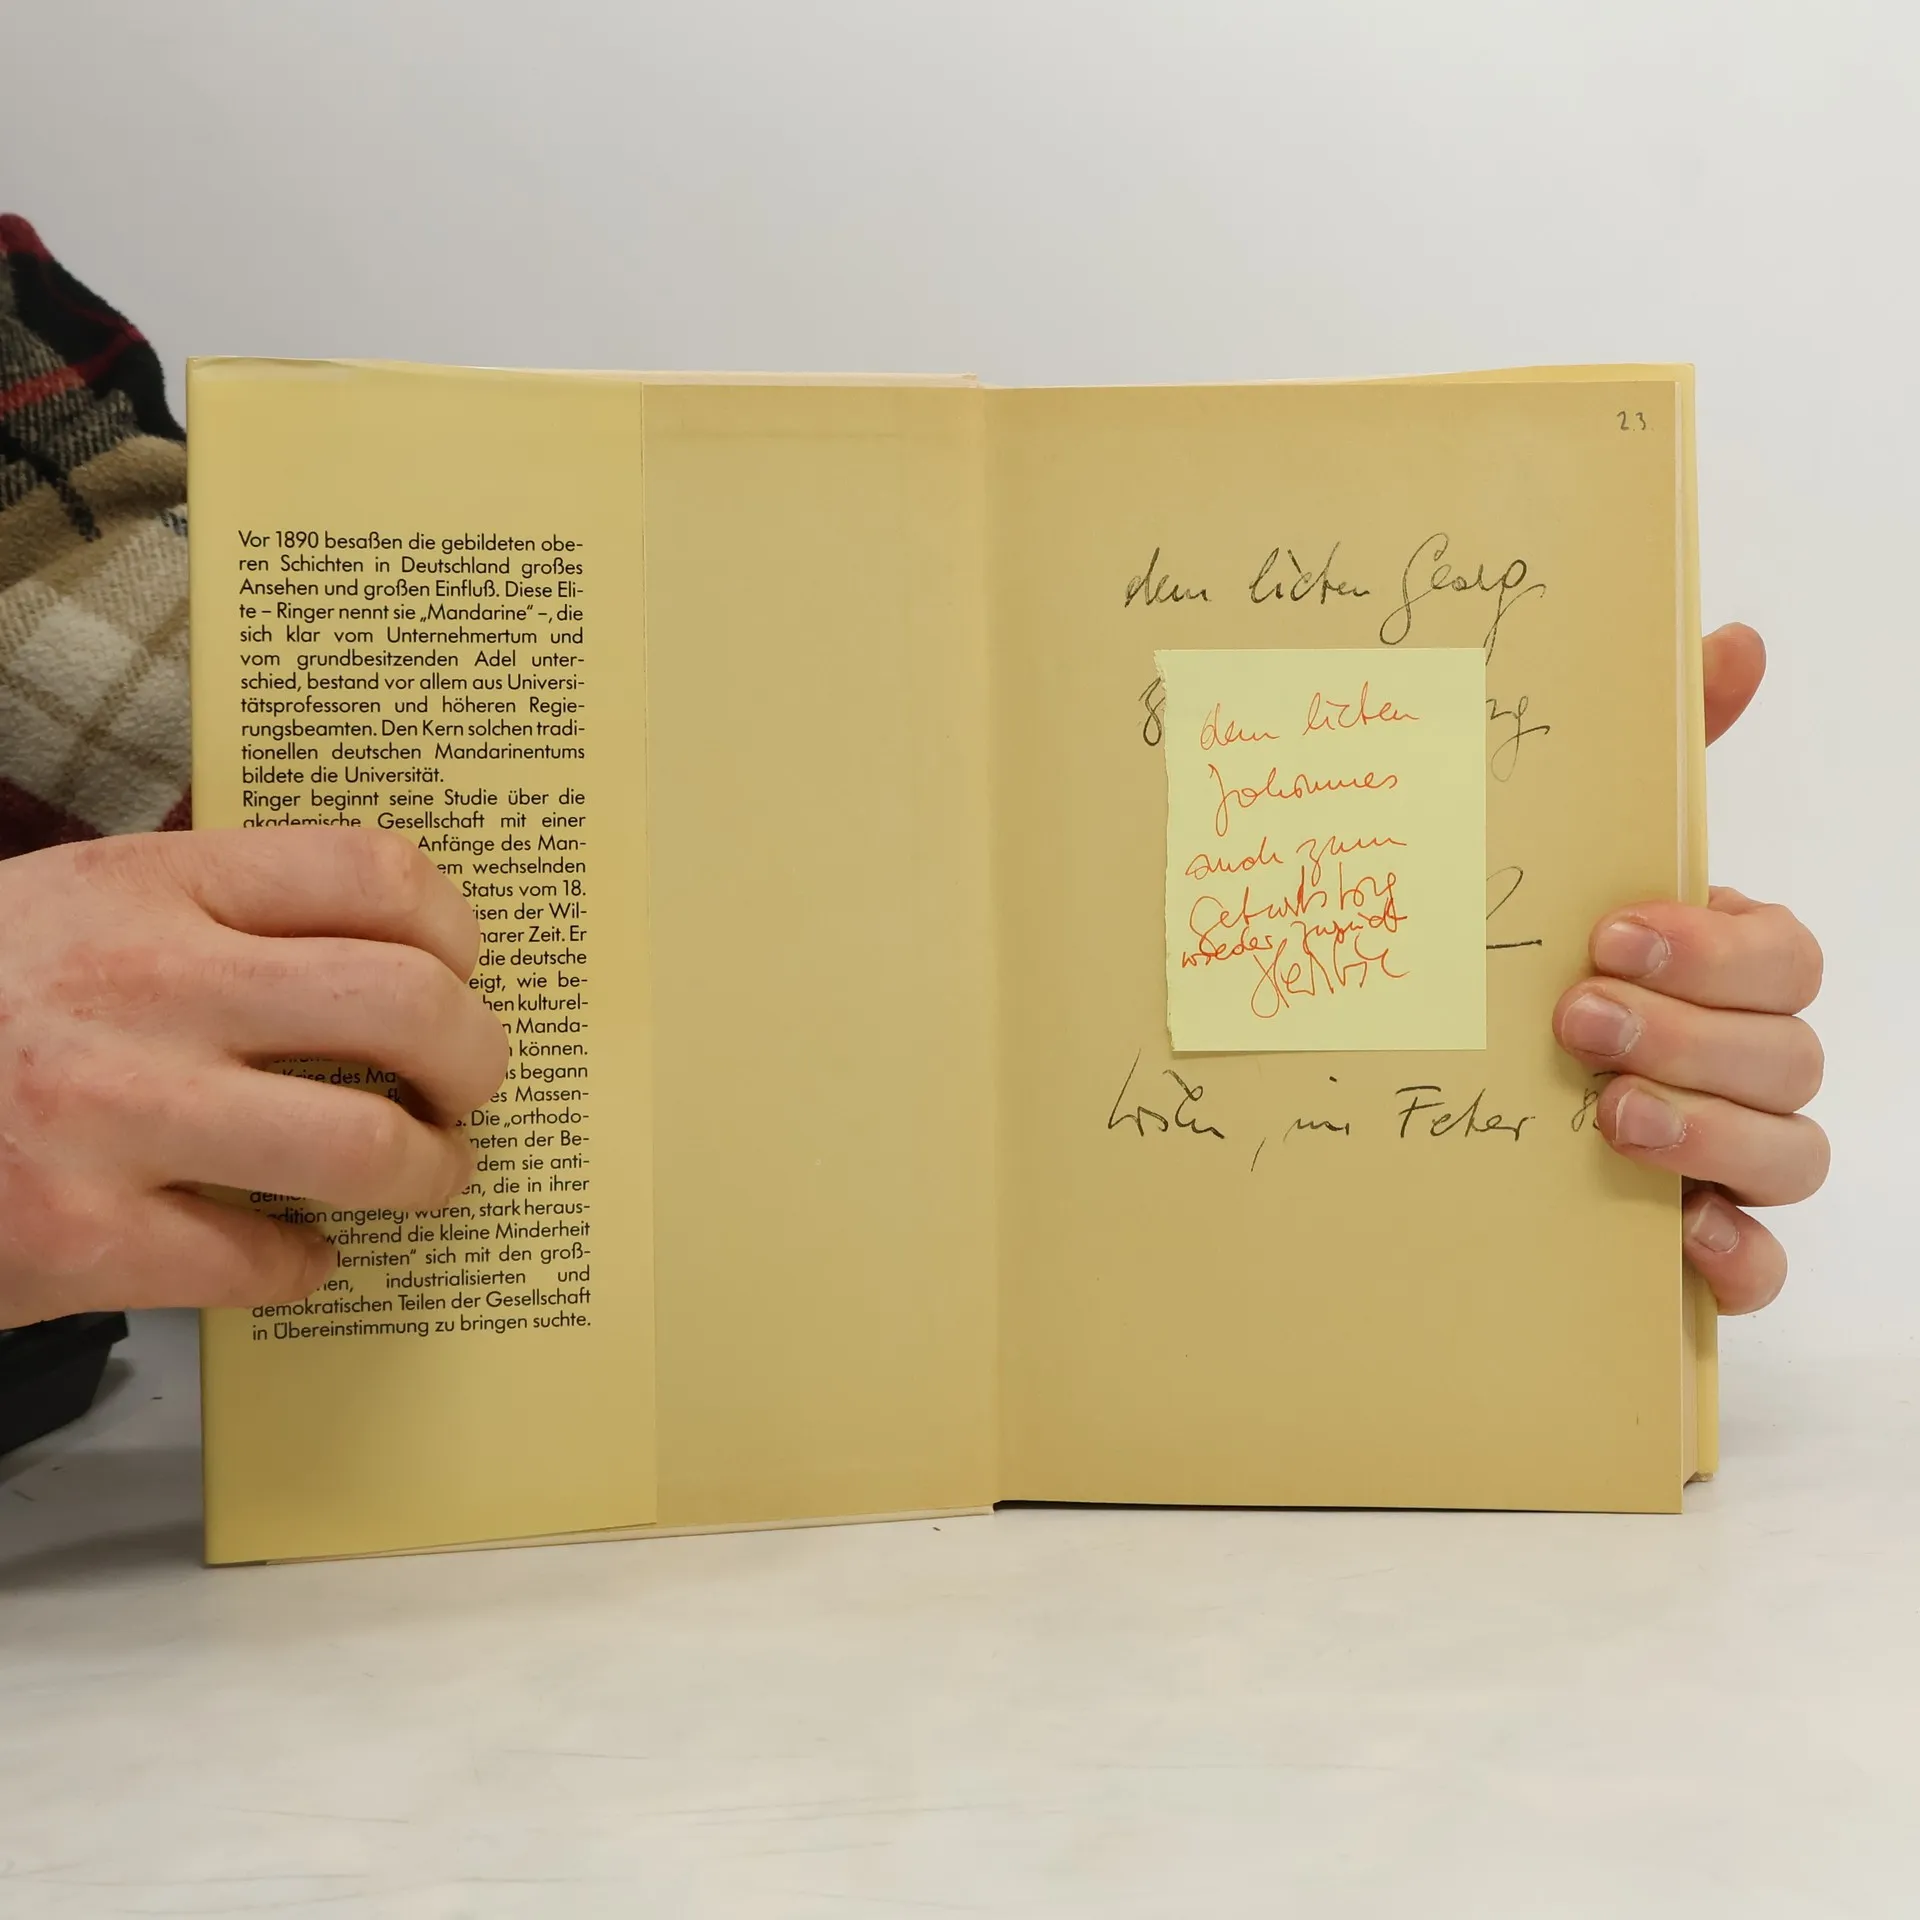 Vor 1890 besaßen die gebildeten obe-
ren Schichten in Deutschland großes
Ansehen und großen Einfluß. Diese Eli-
te – Ringer nennt sie „Mandarine“ –, die
sich klar vom Unternehmertum und
vom grundbesitzenden Adel unter-
schied, bestand vor allem aus Universi-
tätsprofessoren und höheren Regie-
rungsbeamten. Den Kern solchen tradi-
tionellen deutschen Mandarinentums
bildete die Universität.
Ringer beginnt seine Studie über die
akademische Gesellschaft mit einer
Anfänge des Man-
wechselnden
Status vom 18.
der Wil-
Zeit. Er
die deutsche
wie be-
kulturel-
Manda-
können.
begann
Massen-
Die „orthodo-
der Be-
dem sie anti-
die in ihrer
angelegt waren, stark heraus-
während die kleine Minderheit
sich mit den groß-
industrialisierten und
demokratischen Teilen der Gesellschaft
in Übereinstimmung zu bringen suchte.
23.
dem lieben Georg
dem lieben
Johannes
auch zum
Geburtstag
wieder zurück
im Feber